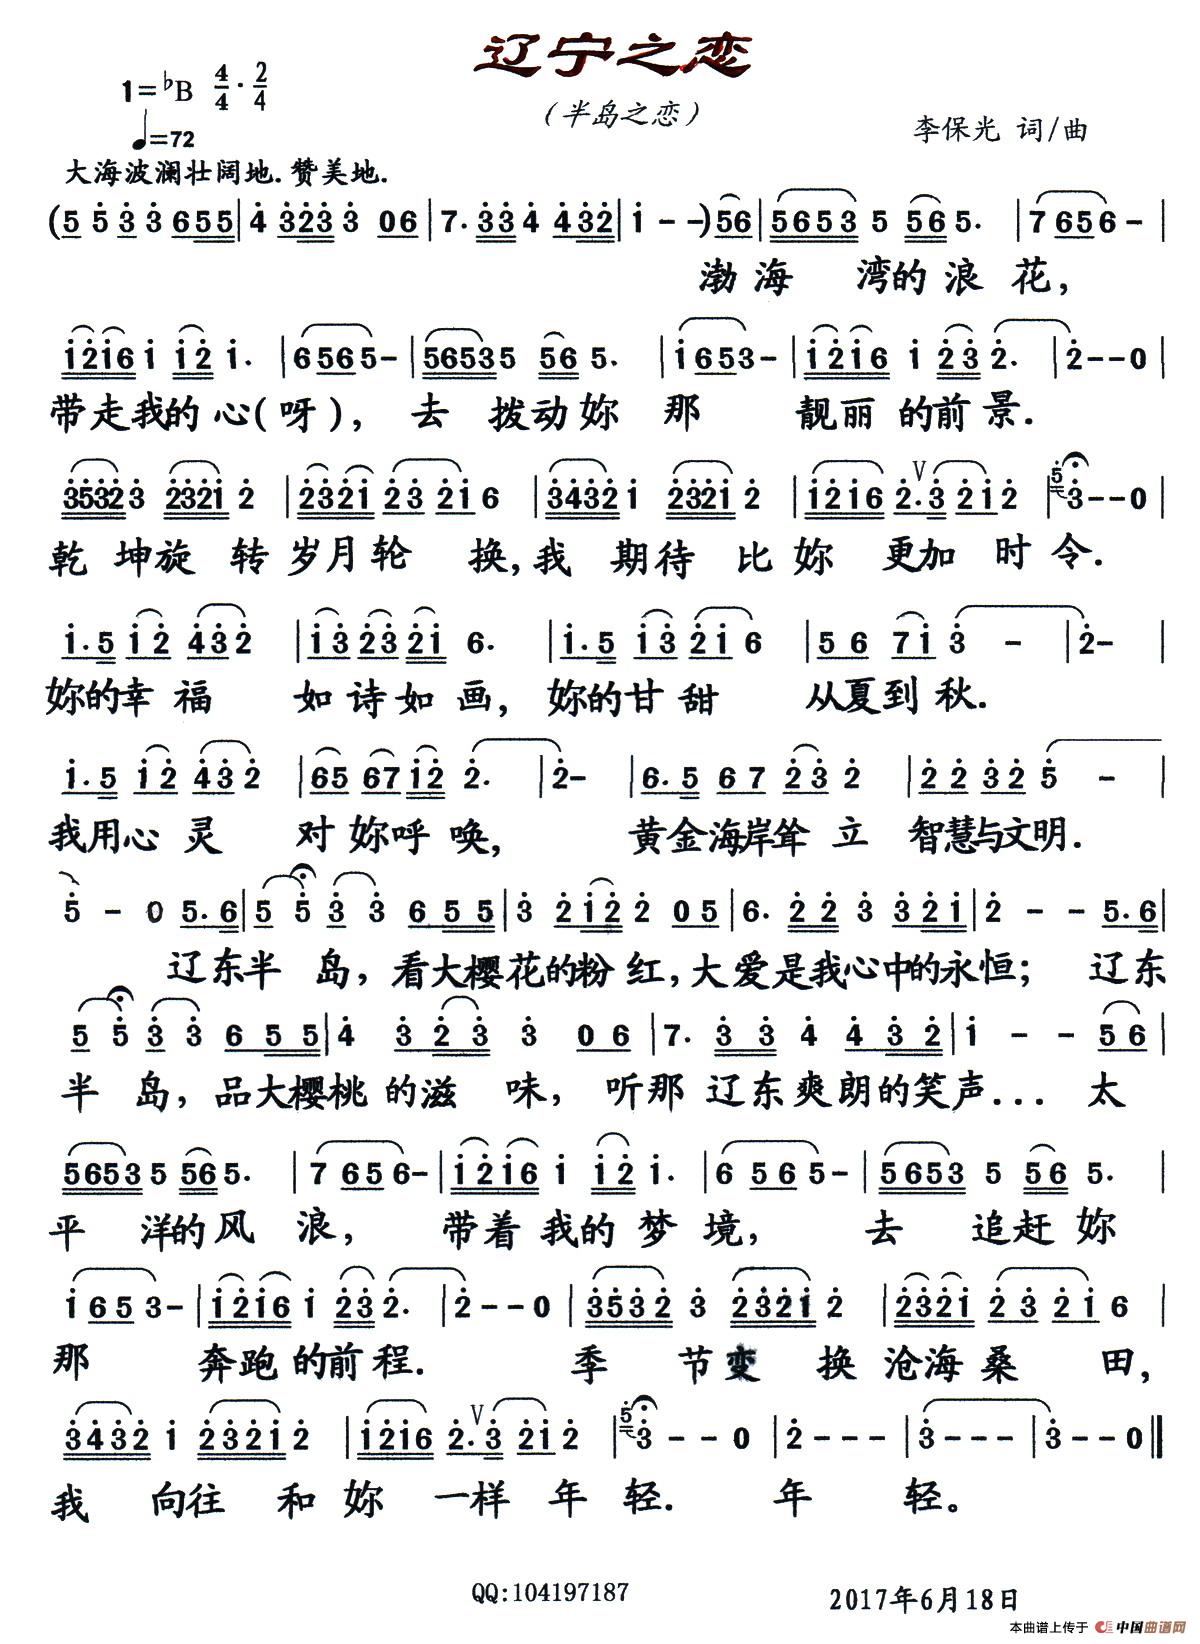 辽宁之恋
1=♭B 4/4·2/4
(半岛之恋)
李保光 词/曲
♩=72
大海波澜壮阔地.赞美地.
(5 5 3 3 655|4 323 3 06|7. 33 4 432|1 - -)56|5653 5 565.|7 656-|
渤海 湾的浪花，
1216 1 12 1.|6565-|56535 56 5.|1653-|1216 1 23 2.|2--0|
带走我的心(呀)，去 拨动妳 那 靓丽的前景.
35323 2321 2|2321 23 21 6|3432 1 2321 2|1216 2.3 212|53--0|
乾 坤旋 转岁月轮 换,我 期待 比妳 更加 时令.
1.5 12 432|13 23 21 6.|1.5 13 21 6|56 71 3 -|2-|
妳的幸福 如诗如画，妳的甘甜 从夏到秋.
1.5 12 432|65 67 12 2.|2-|6.5 67 23 2|22 32 5 -|
我用心灵 对妳呼唤，黄金海岸耸立 智慧与文明.
5 - 0 5.6|5 5 3 3 655|3 212 2 05|6. 22 3 321|2 - - 5.6|
辽东半岛，看大樱花的粉红,大爱是我心中的永恒；辽东
5 5 3 3 6 55|4 3 23 3 06|7. 33 4 4 32|1 - - 56|
半岛，品大樱桃的滋味，听那辽东爽朗的笑声...太
56535 565.|7 656-|1216 1 12 1.|6 565-|5653 5 56 5.|
平 洋的风浪，带着我的梦境，去 追赶妳
1653-|1216 1 23 2.|2--0|3532 3 2321 2|2321 23 21 6|
那 奔跑的前程. 季 节变 换沧海桑 田，
3432 1 2321 2|1216 2.3 212|53--0|2---|3---|3--0‖
我 向往 和妳 一样年轻. 年 轻。
QQ:104197187
2017年6月18日
本曲谱上传于 中国曲谱网